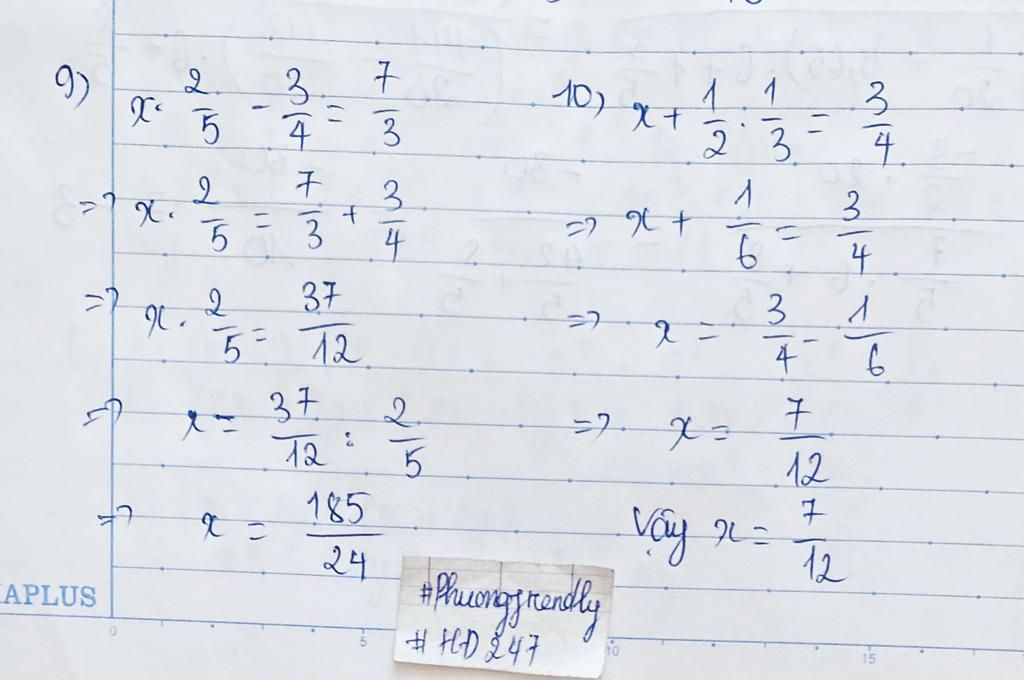 9) x · 2/5 - 3/4 = 7/3
=> x · 2/5 = 7/3 + 3/4
=> x · 2/5 = 37/12
=> x = 37/12 : 2/5
=> x = 185/24
10) x + 1/2 · 1/3 = 3/4
=> x + 1/6 = 3/4
=> x = 3/4 - 1/6
=> x = 7/12
Vậy x = 7/12
#Phuongfrendly
#HD247
APLUS
0 5 10 15